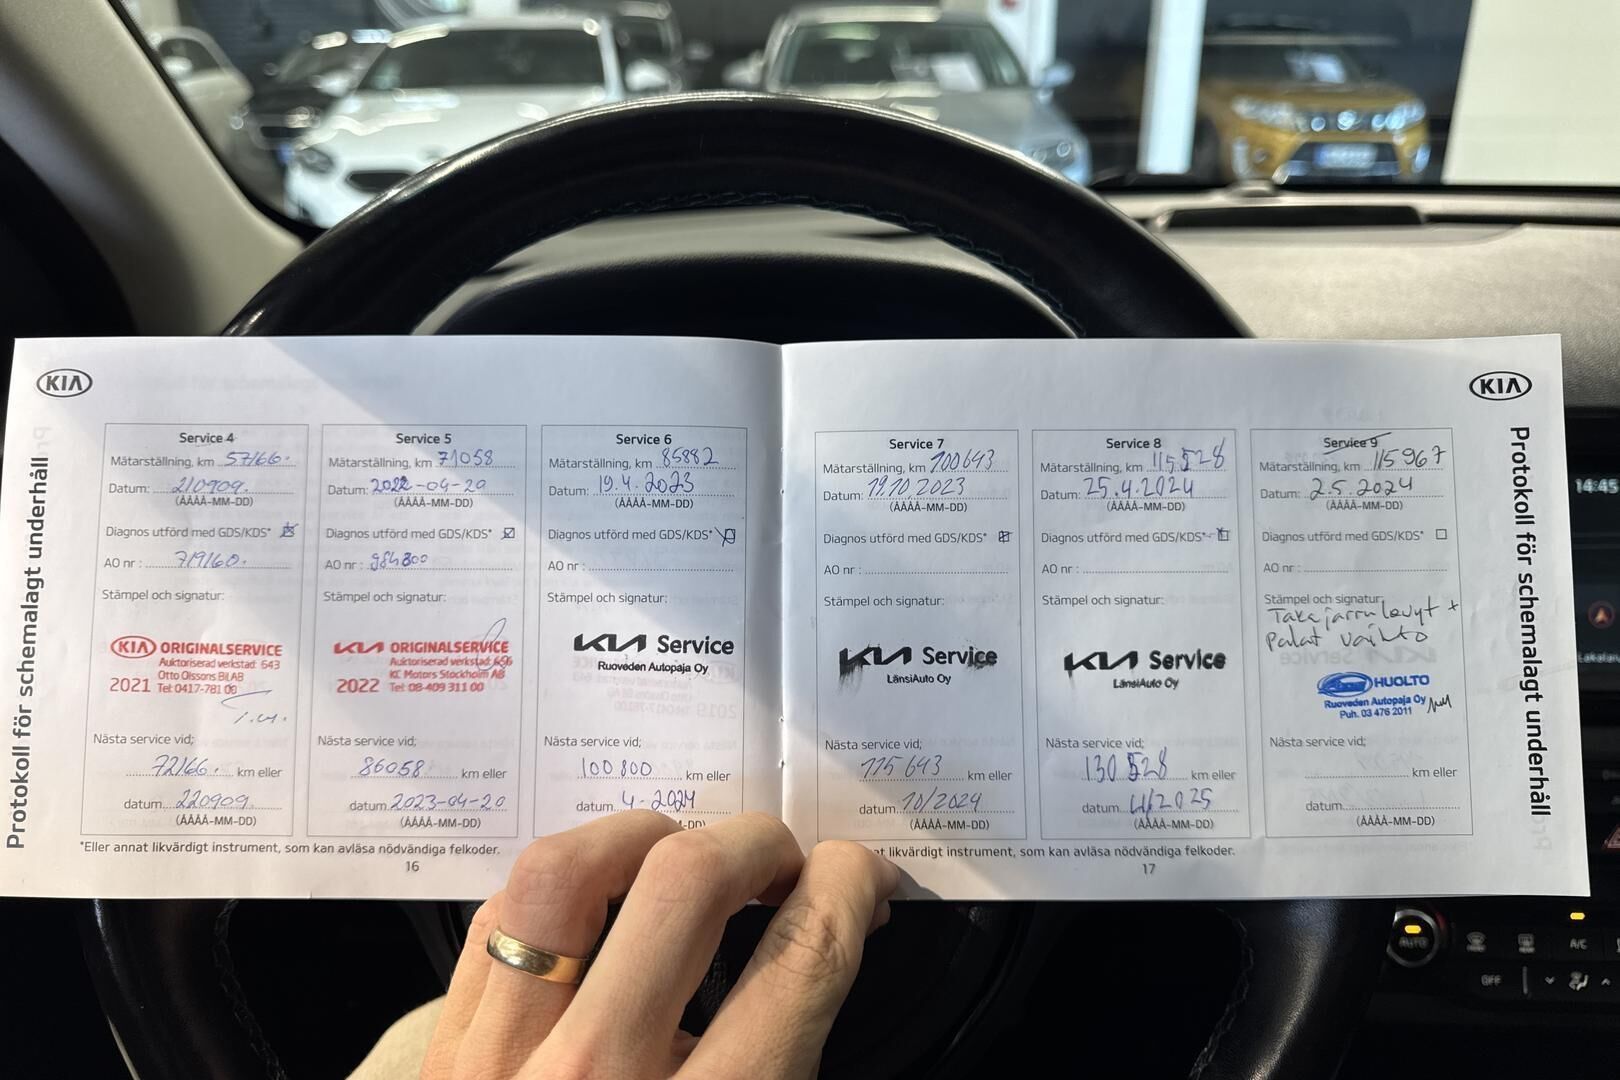 KIA
Protokoll för schemalagt underhåll
Service 4
Mätarställning, km 57166.
Datum: 210909.
(ÅÅÅÅ-MM-DD)
Diagnos utförd med GDS/KDS*
AO nr : 719160.
Stämpel och signatur:
KIA ORIGINALSERVICE
Auktoriserad verkstad: 643
Otto Olssons Bil AB
2021 Tel: 0417-781 00
Nästa service vid;
72166. km eller
datum 220909.
(ÅÅÅÅ-MM-DD)
Service 5
Mätarställning, km 71058
Datum: 2022-04-20
(ÅÅÅÅ-MM-DD)
Diagnos utförd med GDS/KDS*
AO nr : 984800
Stämpel och signatur:
KIA ORIGINALSERVICE
Auktoriserad verkstad: 696
KC Motors Stockholm AB
2022 Tel: 08-409 311 00
Nästa service vid;
86058 km eller
datum 2023-04-20
(ÅÅÅÅ-MM-DD)
Service 6
Mätarställning, km 85882
Datum: 19.4.2023
(ÅÅÅÅ-MM-DD)
Diagnos utförd med GDS/KDS*
AO nr :
Stämpel och signatur:
KIA Service
Ruoveden Autopaja Oy
Nästa service vid;
100 800 km eller
datum 4-2024
-DD)
*Eller annat likvärdigt instrument, som kan avläsa nödvändiga felkoder.
16
KIA
Protokoll för schemalagt underhåll
Service 7
Mätarställning, km 100643
Datum: 19.10.2023
(ÅÅÅÅ-MM-DD)
Diagnos utförd med GDS/KDS*
AO nr :
Stämpel och signatur:
KIA Service
LänsiAuto Oy
Nästa service vid;
115643 km eller
datum 10/2024
(ÅÅÅÅ-MM-DD)
Service 8
Mätarställning, km 115528
Datum: 25.4.2024
(ÅÅÅÅ-MM-DD)
Diagnos utförd med GDS/KDS*
AO nr :
Stämpel och signatur:
KIA Service
LänsiAuto Oy
Nästa service vid;
130 528 km eller
datum 4/2025
(ÅÅÅÅ-MM-DD)
Service 9
Mätarställning, km 115967
Datum: 2.5.2024
(ÅÅÅÅ-MM-DD)
Diagnos utförd med GDS/KDS*
AO nr :
Stämpel och signatur:
Takajarrulevyt +
palat vaihto
HUOLTO
Ruoveden Autopaja Oy
Puh. 03 476 2011
Nästa service vid;
km eller
datum
(ÅÅÅÅ-MM-DD)
likvärdigt instrument, som kan avläsa nödvändiga felkoder.
17
14:45
AUTO
A/C
OFF